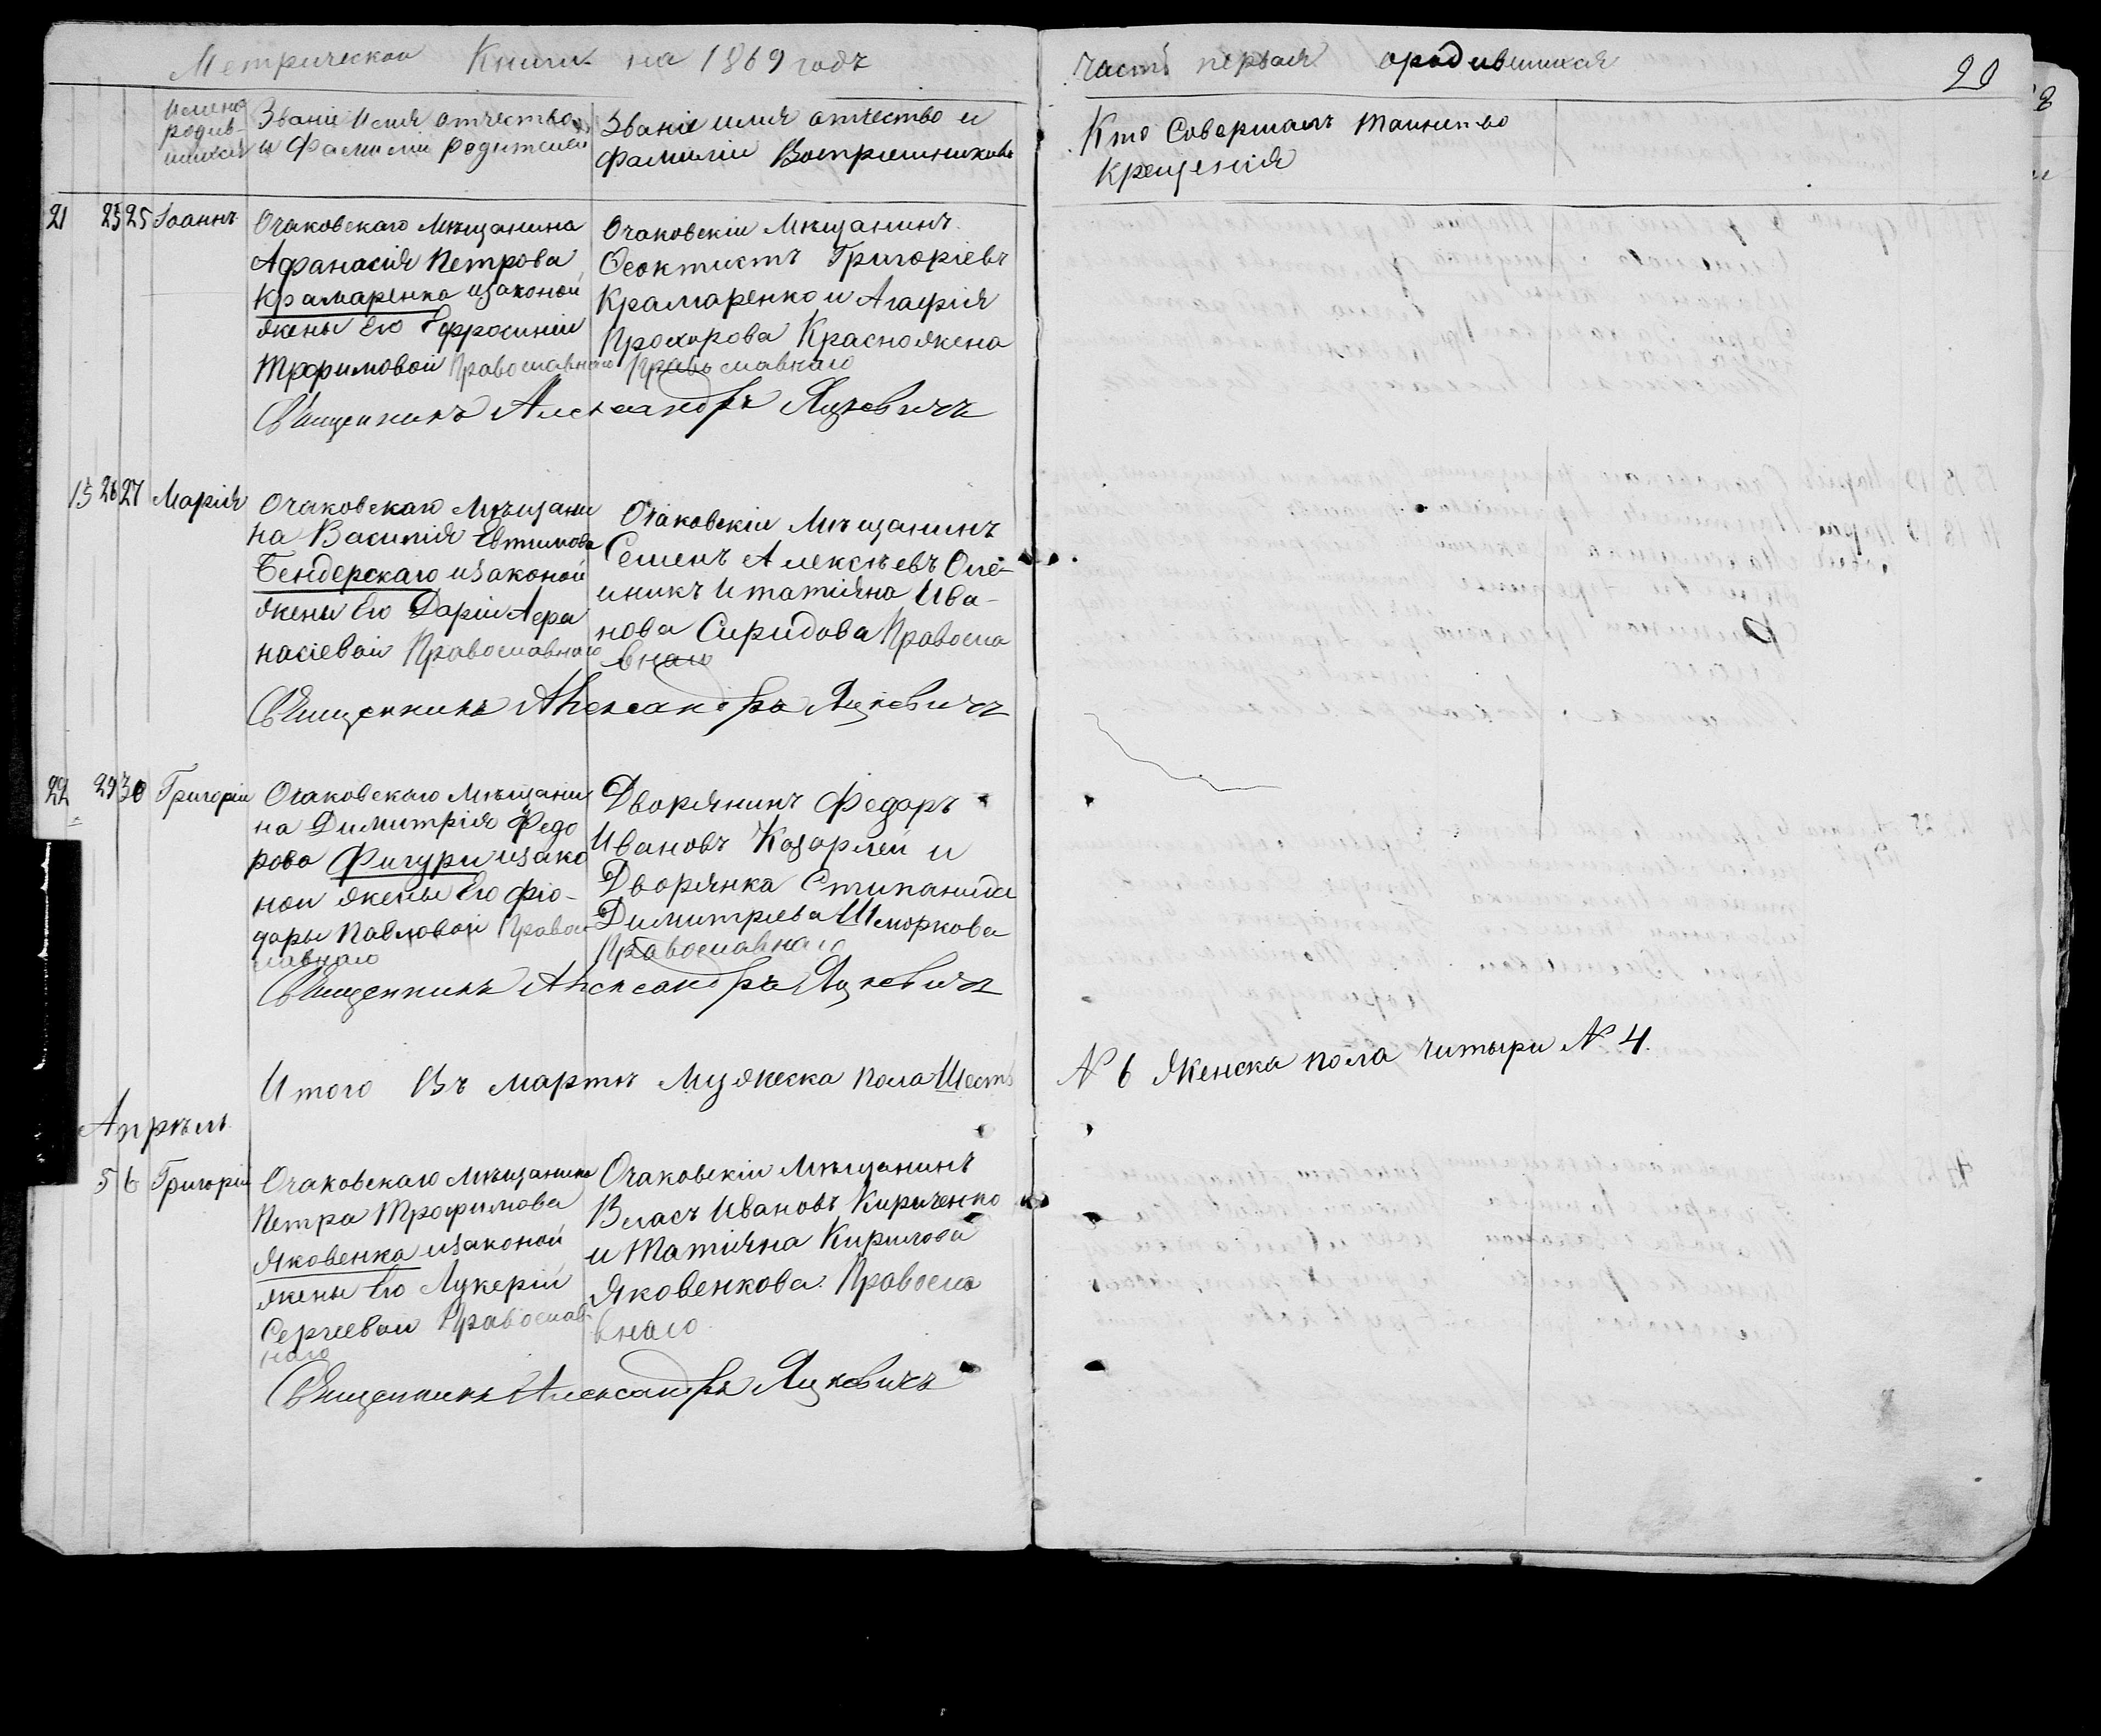 Метрической Книги на 1869 годъ
Имена родив- шихся
Званіе Имя отчество и Фамиліи родителей
Званіе имя отчество и фамиліи Воспріемниковъ
21 25 25 Іоаннъ
Очаковскаго Мѣщанина
Афанасія Петрова
Крамаренка изаконой
жены Его Ефросиніи
Трофимовой Православнаго
Очаковскій Мѣщанинъ
Ѳеоктистъ Григоріевъ
Крамаренко и Агафія
Прохорова Красножена
Православнаго
Священникъ Александръ Яцкевичъ
15 26 27 Марія
Очаковскаго Мѣщани
на Василія Евтимова
Бендерскаго изаконой
жены Его Даріи Афа
насіевой Православнаго
Очаковскій Мѣщанинъ
Семенъ Алексѣевъ Олѣ-
иникъ и татіяна Ива-
нова Сиридова Правосла
внаго
Священникъ Александръ Яцкевичъ
22 29 30 Григорій
Очаковскаго Мѣщани
на Димитрія Федо
рова Фигури изако
ной жены Его Фіо-
доры Павловой Правос
лавнаго
Дворянинъ Федоръ
Ивановъ Козорлей и
Дворянка Стипанида
Димитріева Шморкова
Православнаго
Священникъ Александръ Яцкевичъ
Итого Въ мартѣ Мужеска пола Шесть
Апрѣль
5 6 Григорій
Очаковскаго Мѣщанина
Петра Трофимова
Яковенка изаконой
жены Его Лукеріи
Сергѣевой Православ
наго
Очаковскій Мѣщанинъ
Власъ Ивановъ Кириченко
и Татіяна Кирилова
Яковенкова Правосла
внаго
Священникъ Александръ Яцкевичъ
часть первая ородившихся
20
Кто Совершалъ таинство
Крещенія
№ 6 Женска пола читыри № 4.